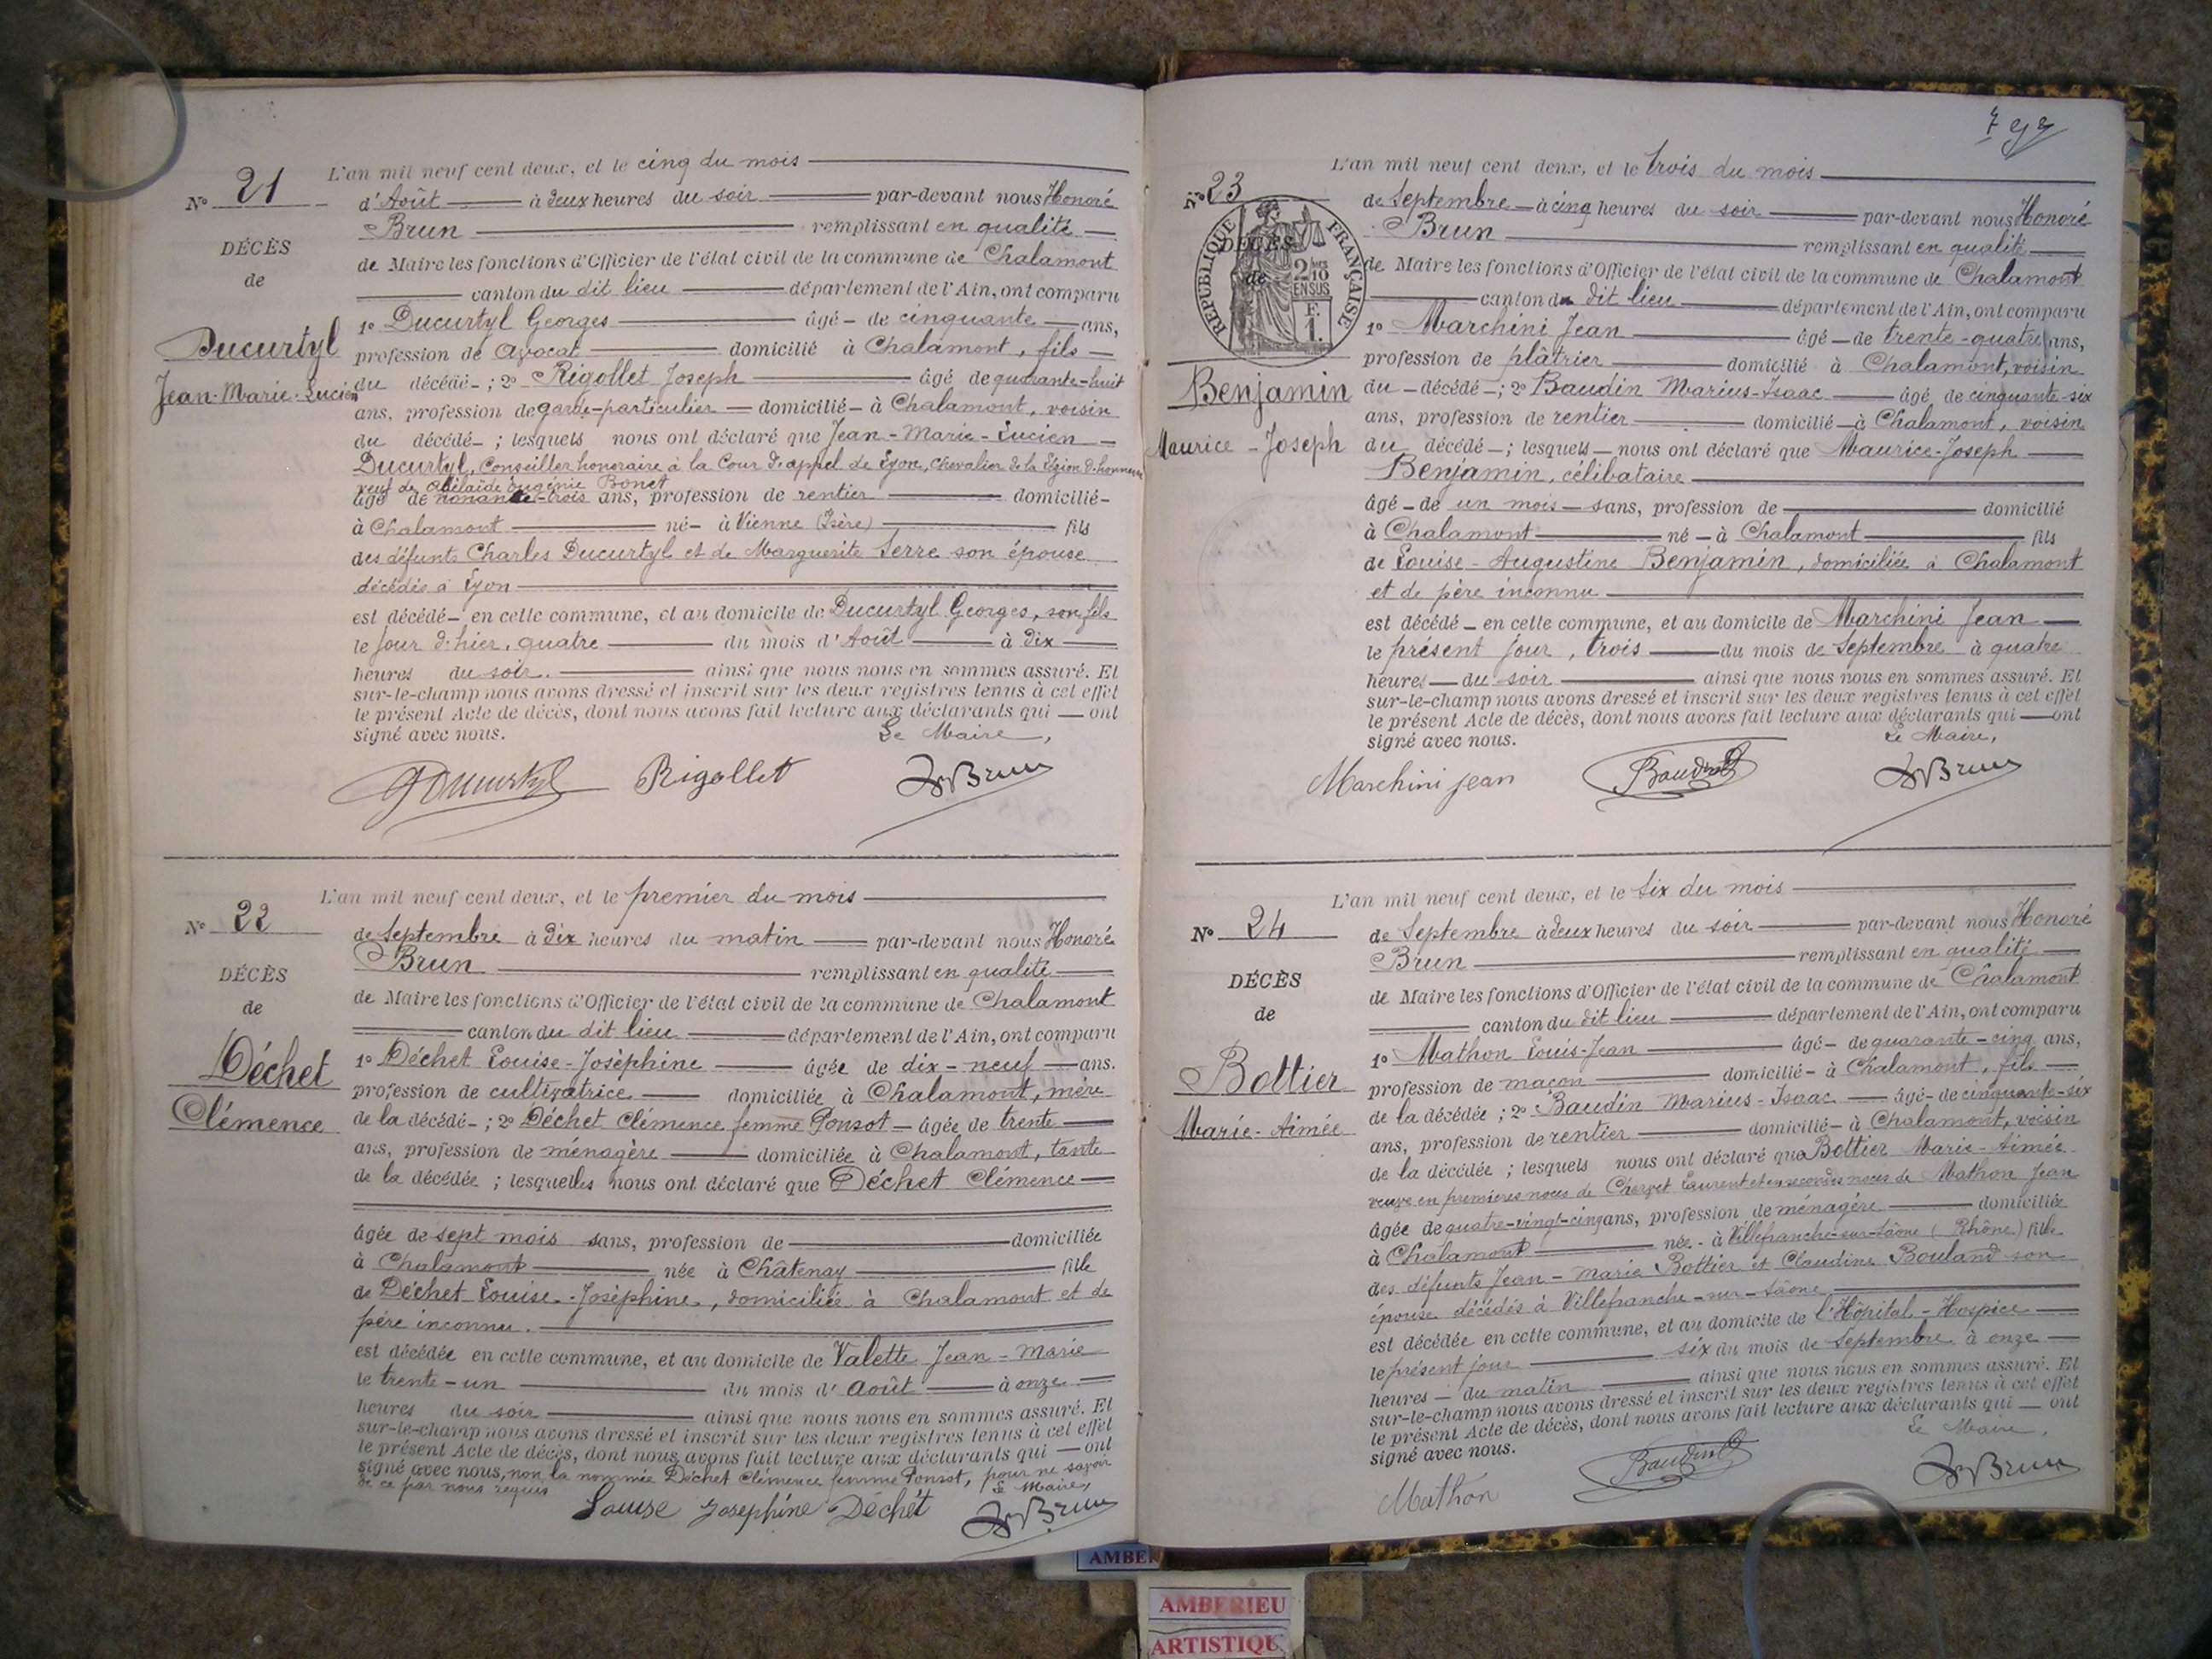 L'an mil neuf cent deux, et le cinq du mois
N° 21
d'Août à deux heures du soir par-devant nous Honoré
Brun remplissant en qualité
DÉCÈS
de
de Maire les fonctions d'Officier de l'état civil de la commune de Chalamont
canton du dit lieu département de l'Ain, ont comparu
1° Ducurtyl Georges âgé de cinquante ans,
Ducurtyl
Jean-Marie-Lucien
profession de Avocat domicilié à Chalamont, fils
du décédé ; 2° Rigollet Joseph âgé de quarante-huit
ans, profession de garde-particulier domicilié à Chalamont, voisin
du décédé ; lesquels nous ont déclaré que Jean-Marie-Lucien
Ducurtyl, Conseiller honoraire à la Cour d'appel de Lyon, chevalier de la Légion d'honneur
veuf de Adélaïde Eugénie Bonet
âgé de nonante-trois ans, profession de rentier domicilié
à Chalamont né à Vienne (Isère) fils
des défunts Charles Ducurtyl et de Marguerite Serre son épouse
décédés à Lyon
est décédé en cette commune, et au domicile de Ducurtyl Georges, son fils
le jour d'hier, quatre du mois d'Août à dix
heures du soir. ainsi que nous nous en sommes assuré. Et
sur-le-champ nous avons dressé et inscrit sur les deux registres tenus à cet effet
le présent Acte de décès, dont nous avons fait lecture aux déclarants qui ont
signé avec nous. Le Maire,
GDucurtyl Rigollet HBrun
L'an mil neuf cent deux, et le premier du mois
N° 22
de Septembre à dix heures du matin par-devant nous Honoré
Brun remplissant en qualité
DÉCÈS
de
de Maire les fonctions d'Officier de l'état civil de la commune de Chalamont
canton du dit lieu département de l'Ain, ont comparu
Déchet
Clémence
1° Déchet Louise-Joséphine âgée de dix-neuf ans.
profession de cultivatrice domiciliée à Chalamont, mère
de la décédé ; 2° Déchet Clémence femme Ponsot âgée de trente
ans, profession de ménagère domiciliée à Chalamont, tante
de la décédée ; lesquelles nous ont déclaré que Déchet Clémence
âgée de sept mois sans, profession de domiciliée
à Chalamont née à Châtenay fille
de Déchet Louise-Joséphine, domiciliée à Chalamont et de
père inconnu.
est décédée en cette commune, et au domicile de Valette Jean-Marie
le trente-un du mois d'Août à onze
heures du soir ainsi que nous nous en sommes assuré. Et
sur-le-champ nous avons dressé et inscrit sur les deux registres tenus à cet effet
le présent Acte de décès, dont nous avons fait lecture aux déclarants qui ont
signé avec nous, non la nommée Déchet Clémence femme Ponsot, pour ne savoir
de ce par nous requis Le Maire,
Louise Joséphine Déchét HBrun
L'an mil neuf cent deux, et le trois du mois
N° 23
de Septembre à cinq heures du soir par-devant nous Honoré
Brun remplissant en qualité
DÉCÈS
de
RÉPUBLIQUE FRANÇAISE
2/10 EN SUS
F. 1.
de Maire les fonctions d'Officier de l'état civil de la commune de Chalamont
canton du dit lieu département de l'Ain, ont comparu
1° Marchini Jean âgé de trente-quatre ans,
profession de plâtrier domicilié à Chalamont, voisin
Benjamin
Maurice-Joseph
du décédé ; 2° Baudin Marius-Isaac âgé de cinquante-six
ans, profession de rentier domicilié à Chalamont, voisin
du décédé ; lesquels nous ont déclaré que Maurice-Joseph
Benjamin, célibataire
âgé de un mois sans, profession de domicilié
à Chalamont né à Chalamont fils
de Louise-Augustine Benjamin, domiciliée à Chalamont
et de père inconnu
est décédé en cette commune, et au domicile de Marchini Jean
le présent jour, trois du mois de Septembre à quatre
heures du soir ainsi que nous nous en sommes assuré. Et
sur-le-champ nous avons dressé et inscrit sur les deux registres tenus à cet effet
le présent Acte de décès, dont nous avons fait lecture aux déclarants qui ont
signé avec nous. Le Maire,
Marchini jean Baudin HBrun
L'an mil neuf cent deux, et le six du mois
N° 24
de Septembre à deux heures du soir par-devant nous Honoré
Brun remplissant en qualité
DÉCÈS
de
de Maire les fonctions d'Officier de l'état civil de la commune de Chalamont
canton du dit lieu département de l'Ain, ont comparu
1° Mathon Louis-Jean âgé de quarante-cinq ans,
Bottier
Marie-Aimée
profession de maçon domicilié à Chalamont, fils
de la décédée ; 2° Baudin Marius-Isaac âgé de cinquante-six
ans, profession de rentier domicilié à Chalamont, voisin
de la décédée ; lesquels nous ont déclaré que Bottier Marie-Aimée
veuve en premières noces de Laurent et en secondes noces de Mathon Jean
âgée de quatre-vingt-cinq ans, profession de ménagère domiciliée
à Chalamont née à Villefranche-sur-Saône (Rhône) fille
des défunts Jean-Marie Bottier et Claudine Bouland son
épouse décédés à Villefranche-sur-Saône
est décédée en cette commune, et au domicile de l'Hôpital-Hospice
le présent jour six du mois de Septembre à onze
heures du matin ainsi que nous nous en sommes assuré. Et
sur-le-champ nous avons dressé et inscrit sur les deux registres tenus à cet effet
le présent Acte de décès, dont nous avons fait lecture aux déclarants qui ont
signé avec nous. Le Maire,
Mathon Baudin HBrun
AMBERIEU
ARTISTIQU